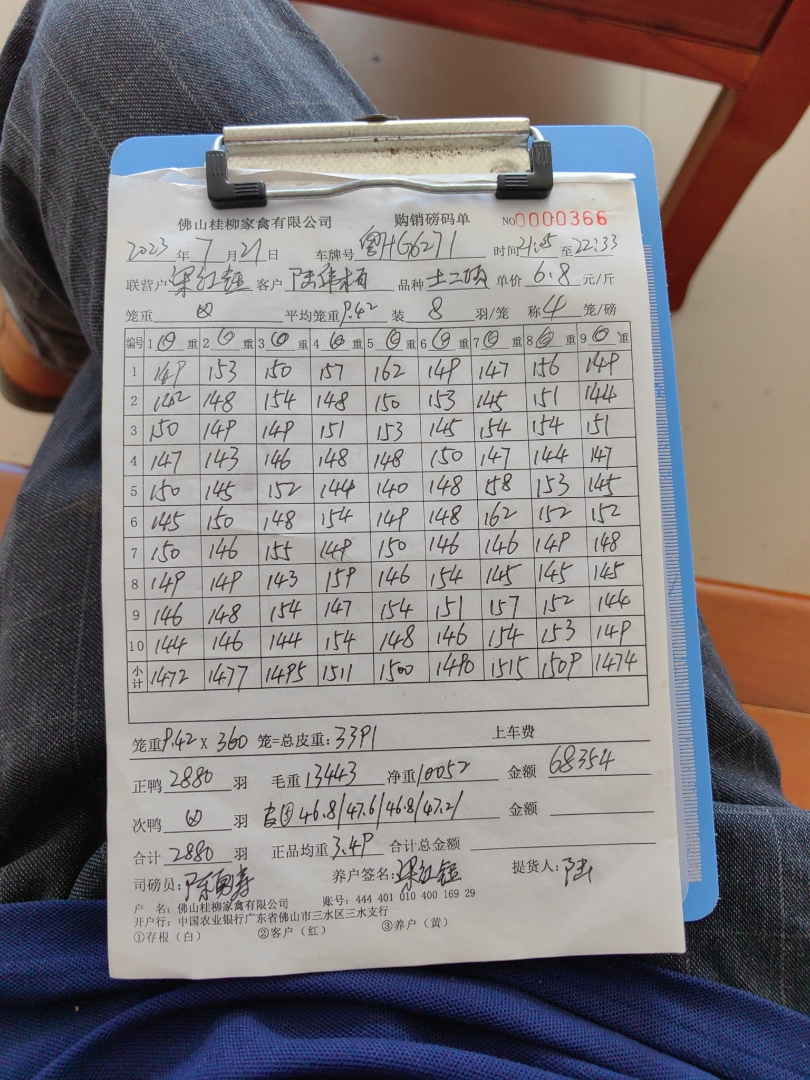 佛山桂柳家禽有限公司 购销磅码单 NO0000366
2023年7月21日 车牌号 粤HG6271 时间21:05至22:33
联营户 梁红钲 客户 品种 土二 单价 6.8 元/斤
笼重 平均笼重9.42 装 8 羽/笼 称4笼/磅
编号 1 重 2 重 3 重 4 重 5 重 6 重 7 重 8 重 9 重
1 149 153 150 157 162 149 147 156 149
2 142 148 154 148 150 153 145 151 144
3 150 149 149 151 153 145 154 154 151
4 147 143 146 148 148 150 147 144 147
5 150 145 152 144 140 148 158 153 145
6 145 150 148 154 149 148 162 152 152
7 150 146 155 149 150 146 146 149 148
8 149 149 143 159 146 154 145 145 145
9 146 148 154 147 154 151 157 152 144
10 144 146 144 154 148 146 154 153 149
小计 1472 1477 1495 1511 1500 1490 1515 1509 1474
笼重9.42 x 360 笼=总皮重:3391 上车费
正鸭 2880 羽 毛重 13443 净重 10052 金额 68354
次鸭 羽 46.8/47.6/46.8/47.2/ 金额
合计 2880 羽 正品均重 3.49 合计总金额
司磅员: 养户签名: 梁红钲 提货人: 陆
户 名: 佛山桂柳家禽有限公司 账号: 444 401 010 400 169 29
开户行: 中国农业银行广东省佛山市三水区三水支行
①存根（白） ②客户（红） ③养户（黄）